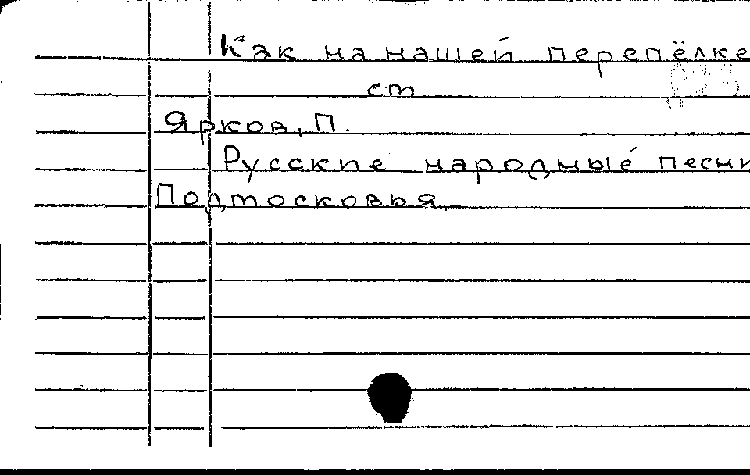 Как на нашей перепёлке
см
Ярков, П.
Русские народные песни
Подмосковья